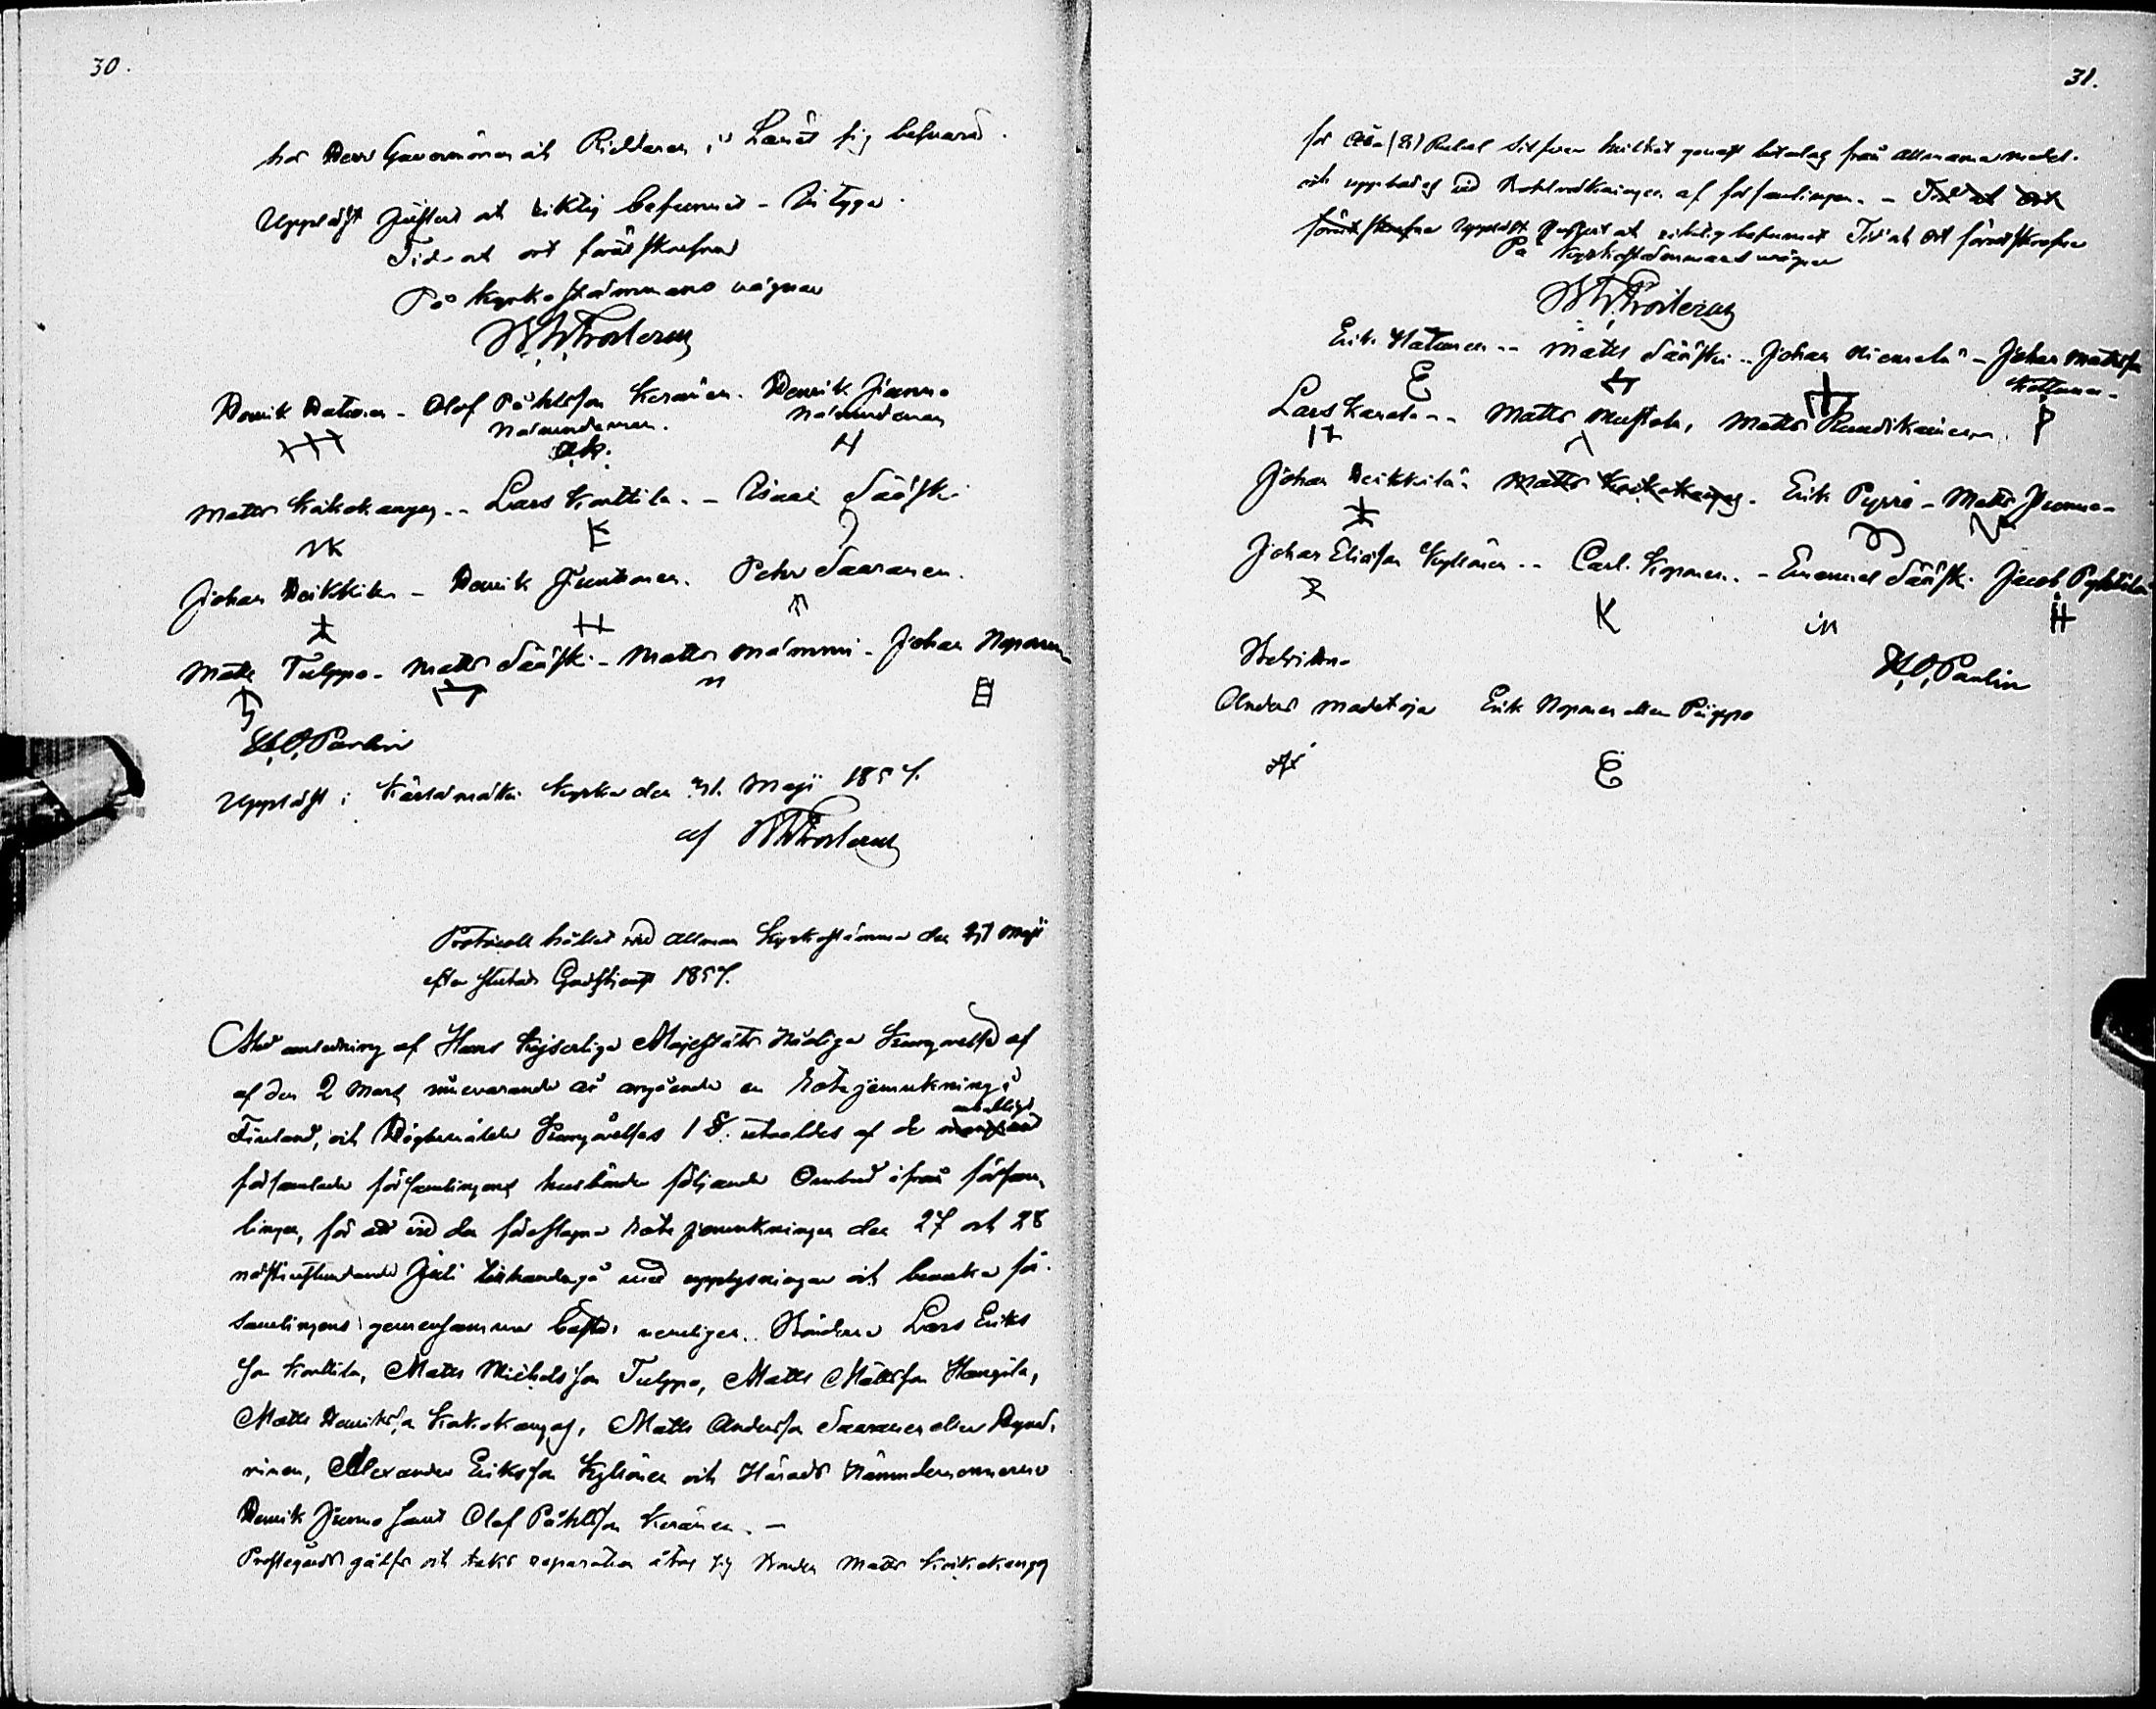 30.
hos Herr Guvernören och Riddaren i Länet sig besvara.
Uppläst justerat och riktig befunnet - Intyga.
Tid och ort förutskrefne
På Kyrkostämmans vägnar
W. W. Frosterus
Henrik Hatunen - Olof Påhlsson Keränen. Henrik Juumo
Nämndeman. Nämndeman
O.K. H
Matts Kaikokangas - Lars Karttila - Esaias Sääski
MK K
Johan Heikkilä - Henrik Juntunen. Pehr Saaranen.
Matts Tulppo - Matts Sääski - Matts Mämmi - Johan Noponen
H. O. Paulin
Uppläst i Kärsämäki Kyrka den 31. Maji 1857.
af W W Frosterus
Protocoll hållet vid allmän Kyrkostämma den 31 Maji
efter slutad Gudstjenst 1857.
Med anledning af Hans Kejserliga Majestäts Nådiga Kungörelse af
af den 2 Mars nuvarande år angående en Rotejemnkning i
Finland, och Högberörde Kungörelses 1 §. utvaldes af de
församlade församlingens husbönder följande Ombud ifrån försam-
lingen, för att vid den föreslagna Rote jemnkningen den 27 och 28
nästinstundande Juli tillhandagå med upplysningar och bevaka för-
samlingens gemensamma bästa, nemligen. Bönderne Lars Eriks
son Karttila, Matts Michelsson Tulppo, Matts Mattsson Haugila,
Matts Henriksson Kaikokangas, Matts Andersson Saaranen eller
rinen, Alexander Eriksson Kyllönen och Härads Nämndemännerne
Henrik Juumo samt Olof Påhlsson Keränen. -
Prostegårds golfs och taks reparation åtog sig Bonden Matts Kaikokangas
31.
för Åtta (8) Rubel Silfver hvilket genast betalas från allmänna medel.
och uppbäras vid af församlingen. - Tid och ort
förutskrefne Uppläst justerat och riktig befunnet Tid och ort förutskrefne
På Kyrkostämmans vägnar
W. W. Frosterus
Erik Hatunen - Matts Sääski - Johan Niemelä - Johan Mattsson
E Kattunen -
Lars Karela - Matts Mustola, Matts Ruudikainen P
Johan Heikkilä Matts Kaikokangas. Erik Pyrrö - Matts Juomo -
Johan Eliasson Kyllönen - Carl Koponen - Emanuel Sääski. Jacob Pyhälä
K
Behritten
H. O. Paulin
Anders Madetoja Erik Noponen eller Piippo
E